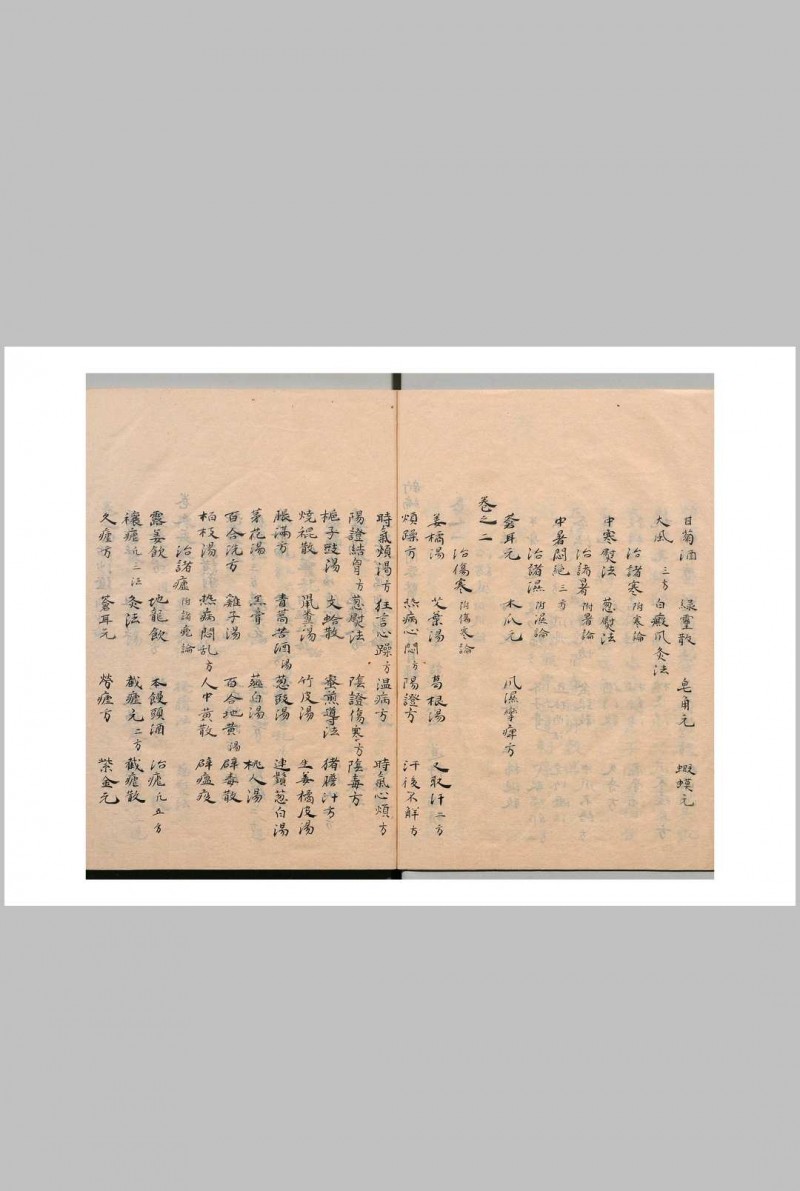 甘菊酒 緑靈散 皂角元 蝦蟆元
大風三方 白癜風灸法
治諸寒附寒論
中寒熨法 葱熨法
治諸暑附暑論
中暑悶絶三方
治諸濕附濕論
蒼耳元 木瓜元 風濕攣痺方
卷之二
治傷寒附傷寒論
姜橘湯 艾葉湯 葛根湯 又取汗二方
煩躁方 熱病心悶方 陽證方 汗後不解方
時氣煩渴方 狂言心躁方 温病方 時氣心煩方
陽證結胷方 葱熨法 陰證傷寒方 陰毒方
梔子豉湯 文蛤散 蜜煎導法 猪膽汁方
燒裩散 鼠糞湯 竹皮湯 生姜橘皮湯
脹滿方 青蒿苦酒湯 葱豉湯 連鬚葱白湯
茅花湯 黑膏 薤白湯 桃人湯
百合洗方 雞子湯 百合地黄湯 辟毒散
柏枝湯 熱病悶乱方 人中黄散 辟瘟疫
治諸瘧附諸瘧論
露姜飲 地龍飲 本饅頭酒 治瘧凡五方
禳瘧凡三法 灸法 截瘧元二方 截瘧散
久瘧方 蒼耳元 勞瘧方 紫金元